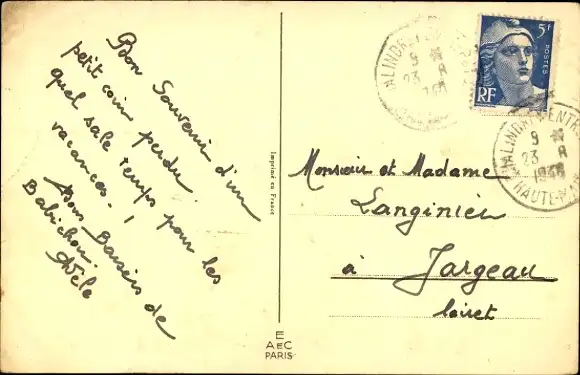 Bon Souvenir d'un
petit coin perdu.
quel sale temps pour les
vacances. !
Bons Baisers de
Babichou.
Adèle
Imprimé en France
E
AEC
PARIS
5F
POSTES
RF
9 *
23 8
9 *
23 8
1948
HAUTE-
Monsieur et Madame
Langinieu
à Jargeau
loiret